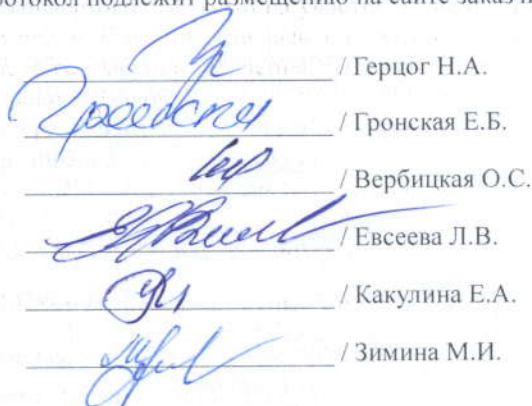 ротокол подлежит размещению на сайте заказ
/ Герцог Н.А.
/ Гронская Е.Б.
/ Вербицкая О.С.
/ Евсеева Л.В.
/ Какулина Е.А.
/ Зимина М.И.